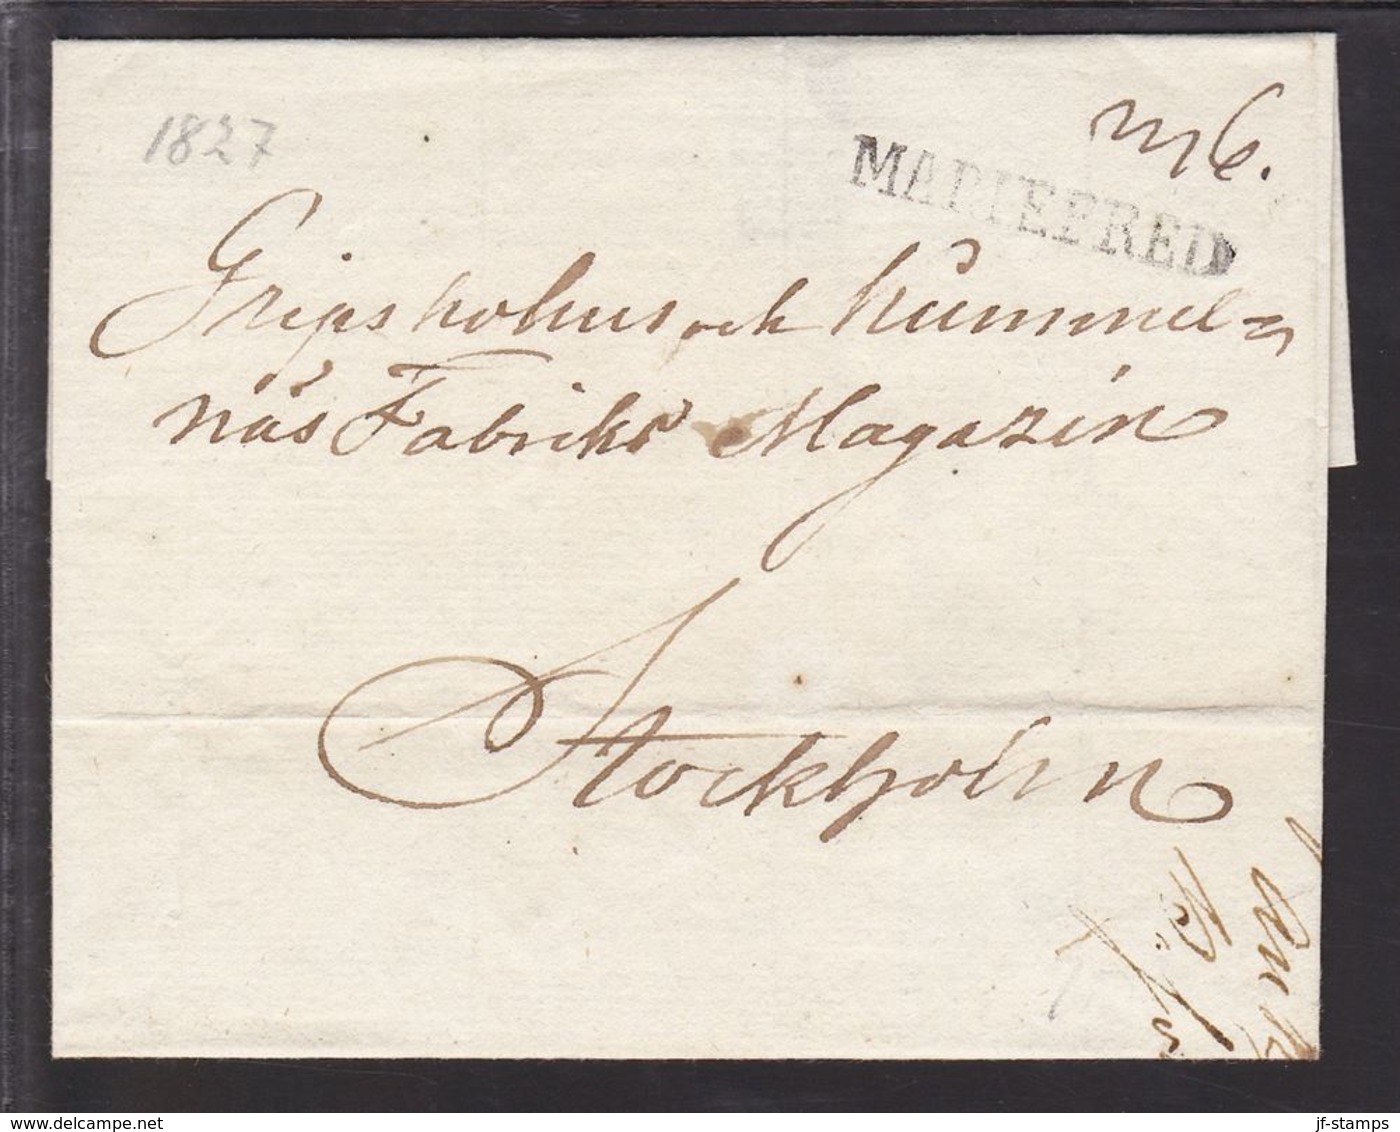 1827
n 6.
MARIEFRED
Gripsholms och Hummel=
näs Fabriks Magazin
Stockholm
delcampe.net
jf-stamps